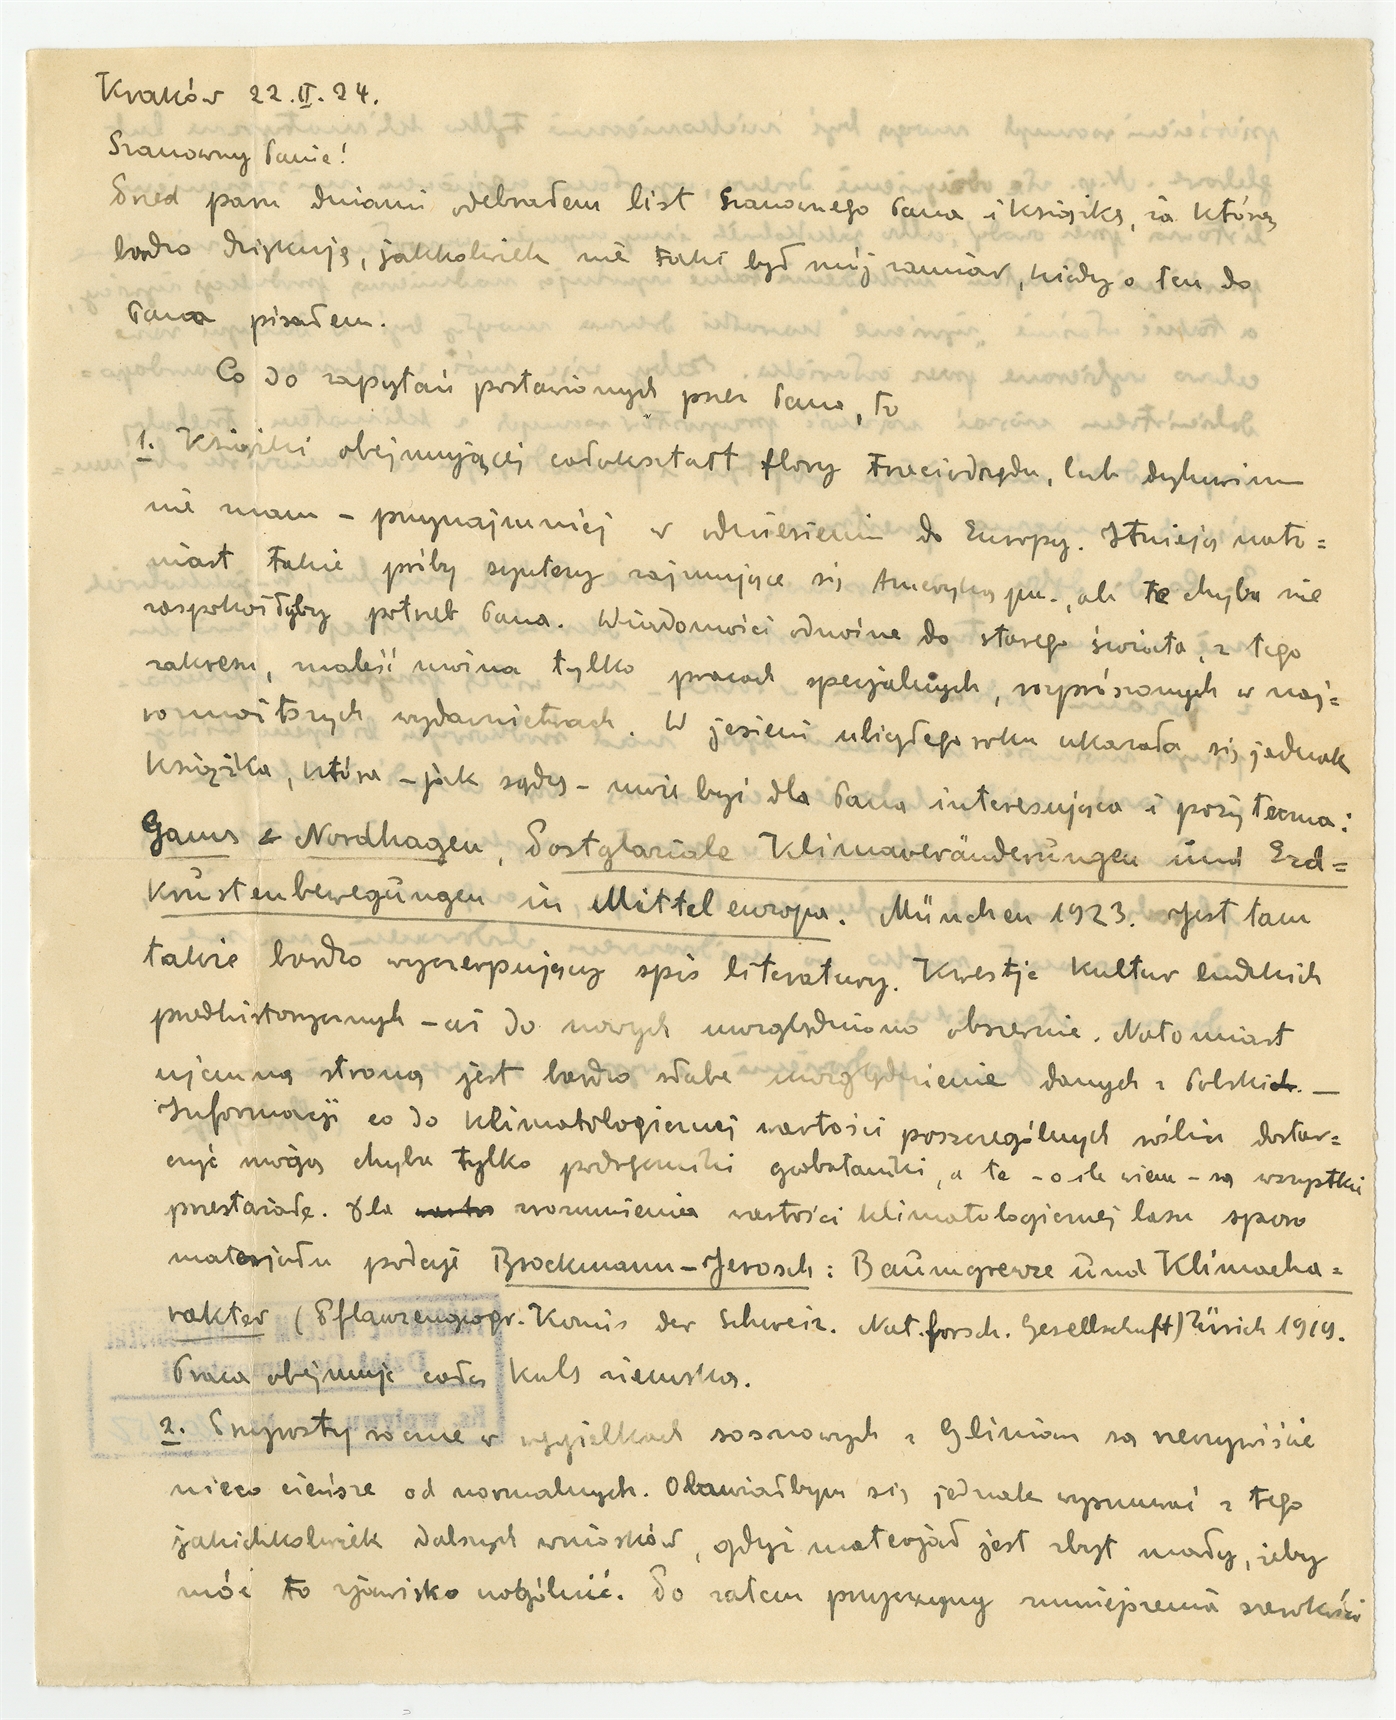 Kraków 22.II.24.
Szanowny Panie!
Przed paru dniami odebrałem list Szanownego Pana i książkę, za którą
bardzo dziękuję, jakkolwiek nie taki był mój zamiar, kiedy o tem do
Pana pisałem.
Co do zapytań postawionych przez Pana, to
1. Książki obejmującej całokształt flory trzeciorzędu, lub dyluwium
nie znam – przynajmniej w odniesieniu do Europy. Istnieją nato=
miast takie próby syntezy zajmujące się Ameryką pn., ale te chyba nie
zaspokoiłyby potrzeb Pana. Wiadomości odnośne do starego świata, z tego
zakresu, znaleść można tylko pracach specjalnych, rozprószonych w naj=
rozmaitszych wydawnictwach. W jesieni ubiegłego roku ukazała się jednak
książka, która – jak sądzę – może być dla Pana interesująca i pożyteczna:
Gams & Nordhagen, Postglaziale Klimaveränderungen und Erd=
krustenbewegungen in Mitteleuropa. München 1923. Jest tam
także bardzo wyczerpujący spis literatury. Kwestje kultur ludzkich
przedhistorycznych – aż do nowych uwzględniono obszernie. Natomiast
ujemną stroną jest bardzo słabe uwzględnienie danych z Polski. —
Informacji co do klimatologicznej wartości poszczególnych roślin dostar=
czyć mogą chyba tylko podręczniki geobotaniki, a te – o ile wiem – są wszystkie
przestarzałe. Dla zrozumienia wartości klimatologicznej lasu sporo
materjału podaje Brockmann–Jerosch: Baumgrenze und Klimacha=
rakter (Pflanzengeogr. Komis der Schweiz. Nat.forsch. Gesellschaft) Zürich 1919.
Praca obejmuje całą kulę ziemską.
2. Przyrosty roczne w węgielkach sosnowych z Glinian są rzeczywiście
nieco cieńsze od normalnych. Obawiałbym się jednak wysnuwać z tego
jakichkolwiek dalszych wniosków, gdyż materjał jest zbyt mały, żeby
móc to zjawisko uogólnić. Po zatem przyczyny zmniejszenia szerokości